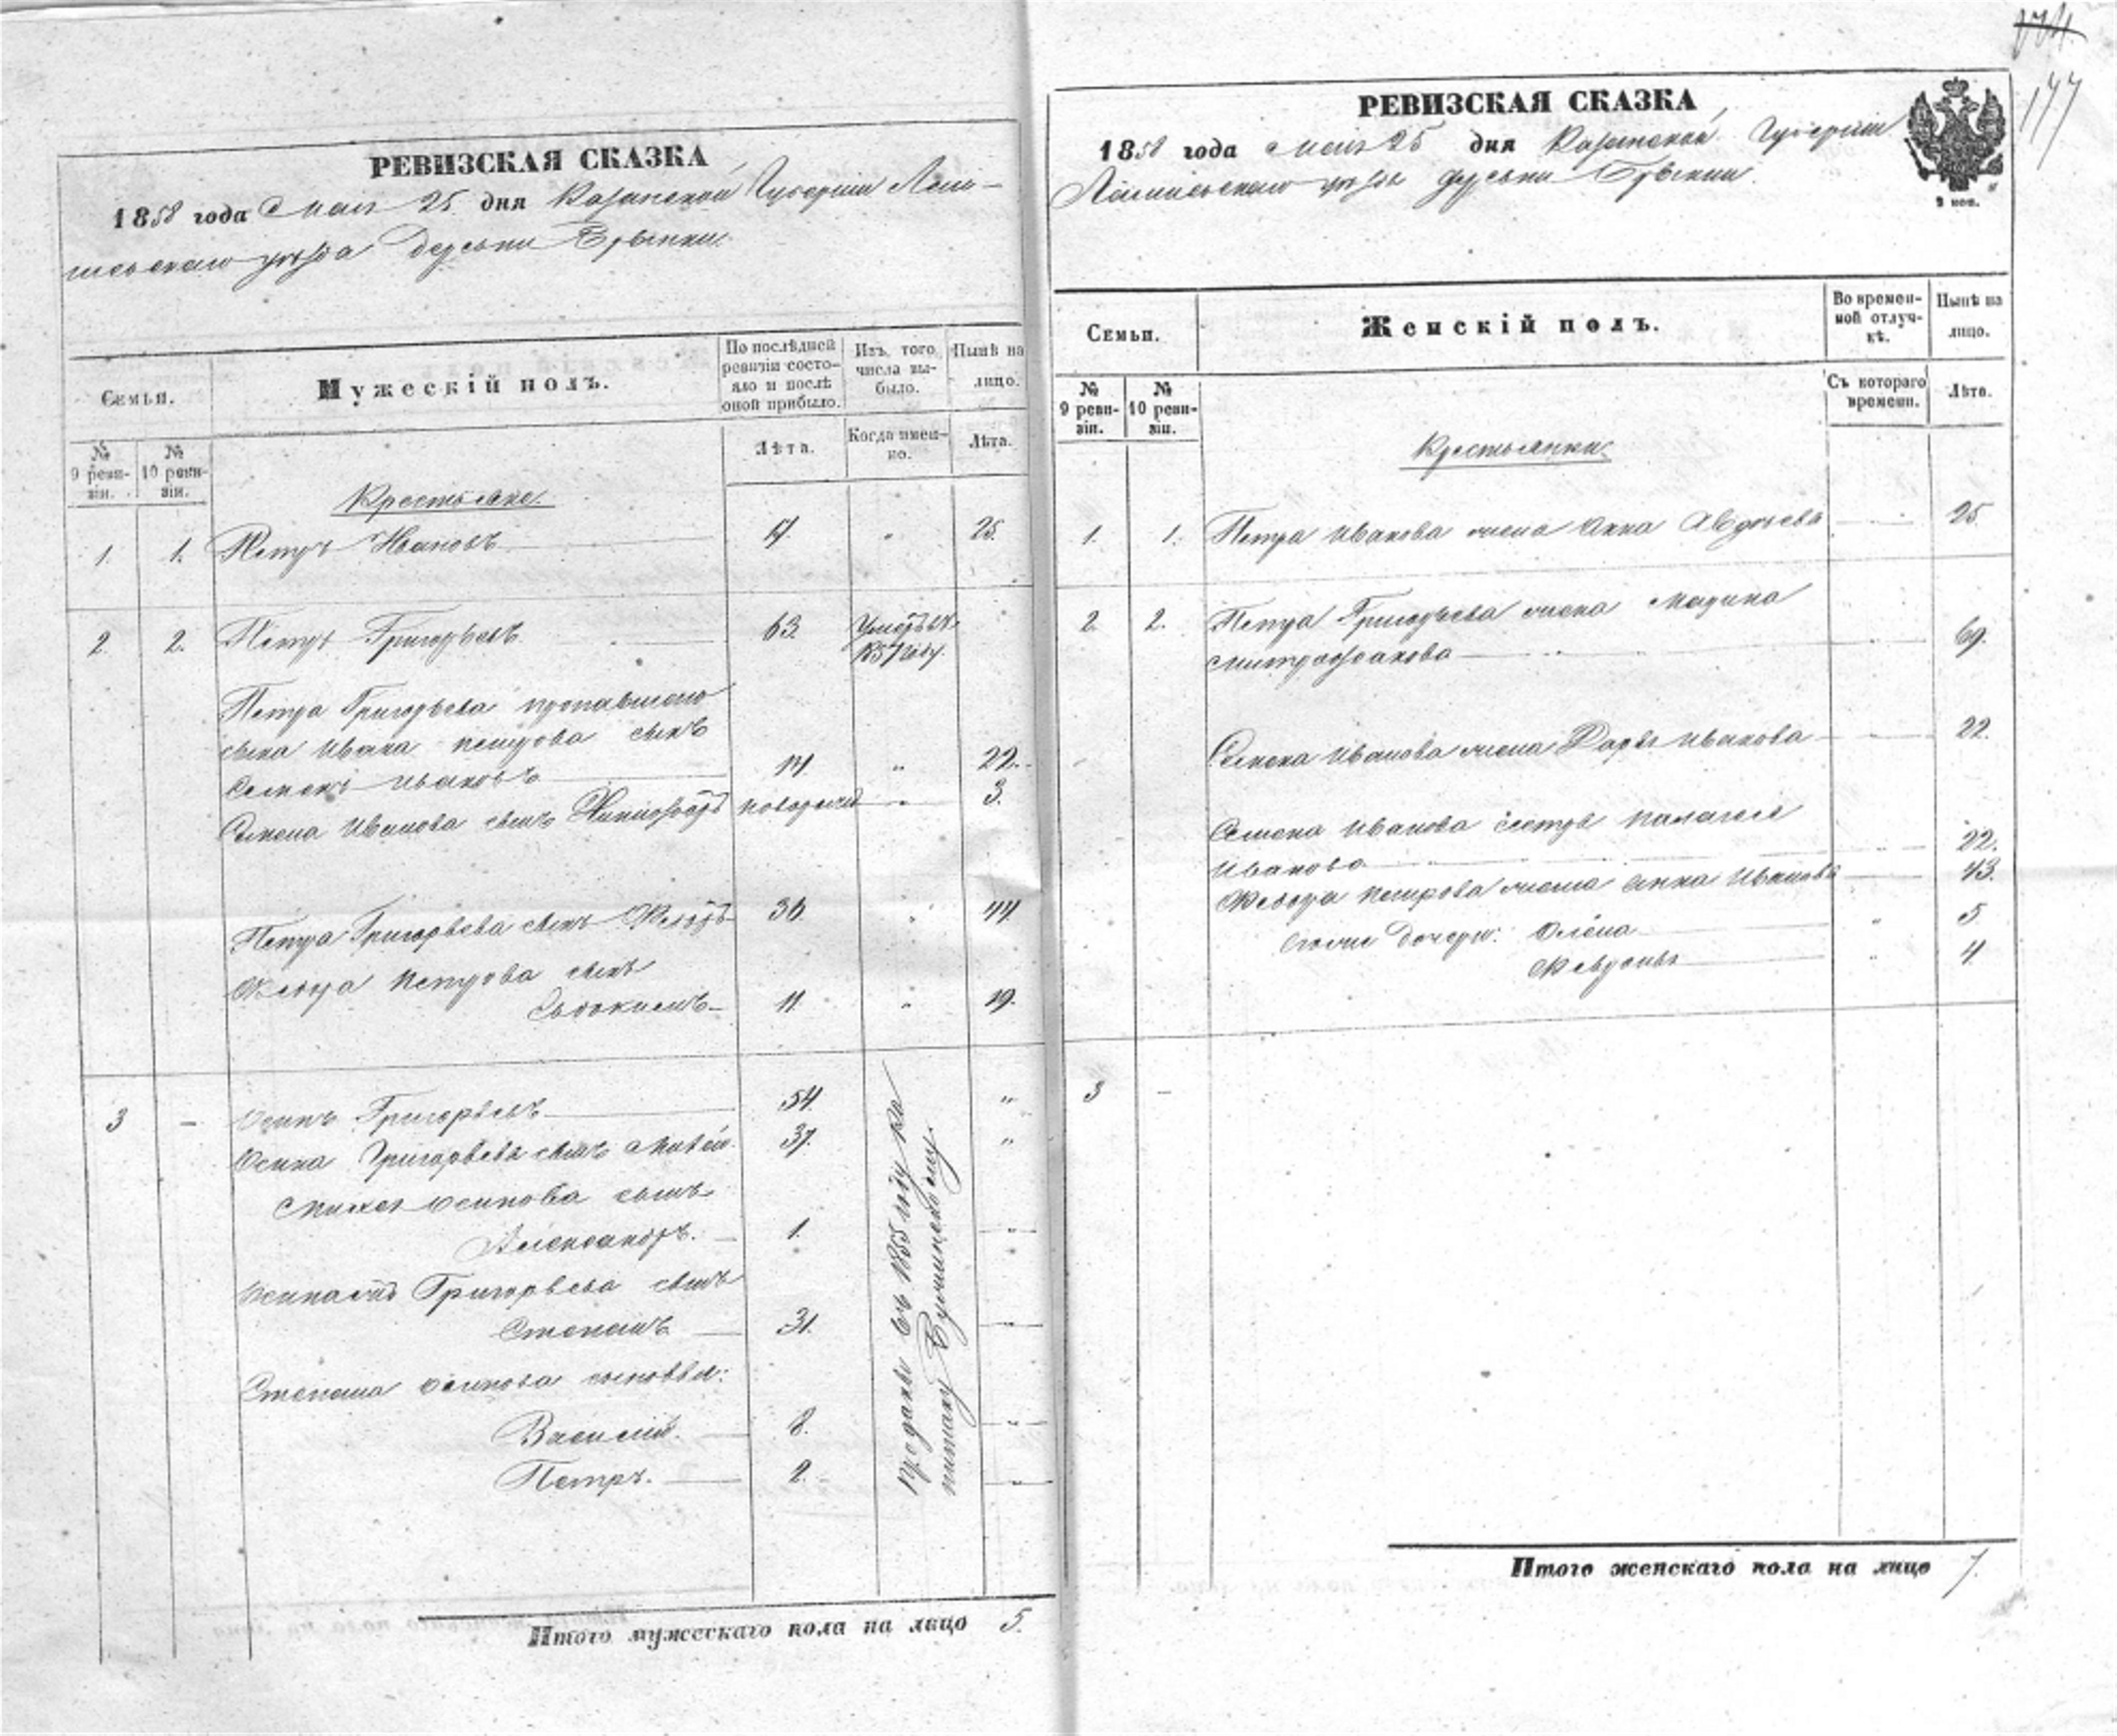 РЕВИЗСКАЯ СКАЗКА
1858 года Мая 25 дня Казанской Губерніи Лаи-
шевскаго уѣзда Деревни
Семьи.
Мужескій полъ.
По послѣдней ревизіи состо-
яло и послѣ оной прибыло.
Изъ того числа вы-
было.
Нынѣ на лицо.
№ 9 реви-
зіи.
№ 10 реви-
зіи.
Лѣта.
Когда имен-
но.
Лѣта.
Крестьяне.
1. 1. Петръ Ивановъ 17. " 25.
2. 2. Петръ Григорьевъ 63. Умеръ въ
1857 году.
Петра Григорьева пропавшаго
сына Ивана Петрова сынъ
Семенъ Ивановъ 14. " 22.
Семена Иванова сынъ Никифоръ новорожд " 3.
Петра Григорьева сынъ Федоръ 36. " 44.
Федора Петрова сынъ
Евдокимъ 11. " 19.
3 - Осипъ Григорьевъ 54. "
Осипа Григорьева сынъ Михей 37. "
Михея Осипова сынъ
Александръ. 1. "
Осипа Григорьева сынъ
Степанъ 31. "
Степана Осипова сыновья:
Василій. 8. "
Петръ. 2. "
Проданы въ 1855 году Ка
питану
Итого мужескаго пола на лицо 5.
174.
177
РЕВИЗСКАЯ СКАЗКА
1858 года Мая 25 дня Казанской Губерніи
Лаишевскаго уѣзда деревни
9 коп.
Семьи.
Женскій полъ.
Во времен-
ной отлуч-
кѣ.
Нынѣ на лицо.
№ 9 реви-
зіи.
№ 10 реви-
зіи.
Съ котораго времени.
Лѣта.
Крестьянки.
1. 1. Петра Иванова жена Анна Авдѣева 25
2. 2. Петра Григорьева жена Марина
Митрофанова " 69.
Семена Иванова жена Дарья Иванова " 22.
Семена Иванова сестра Палагея
Иванова " 22.
Федора Петрова жена Анна Иванова 43.
дочери: Олена " 5
Февронья " 4.
3 -
Итого женскаго пола на лицо 7.